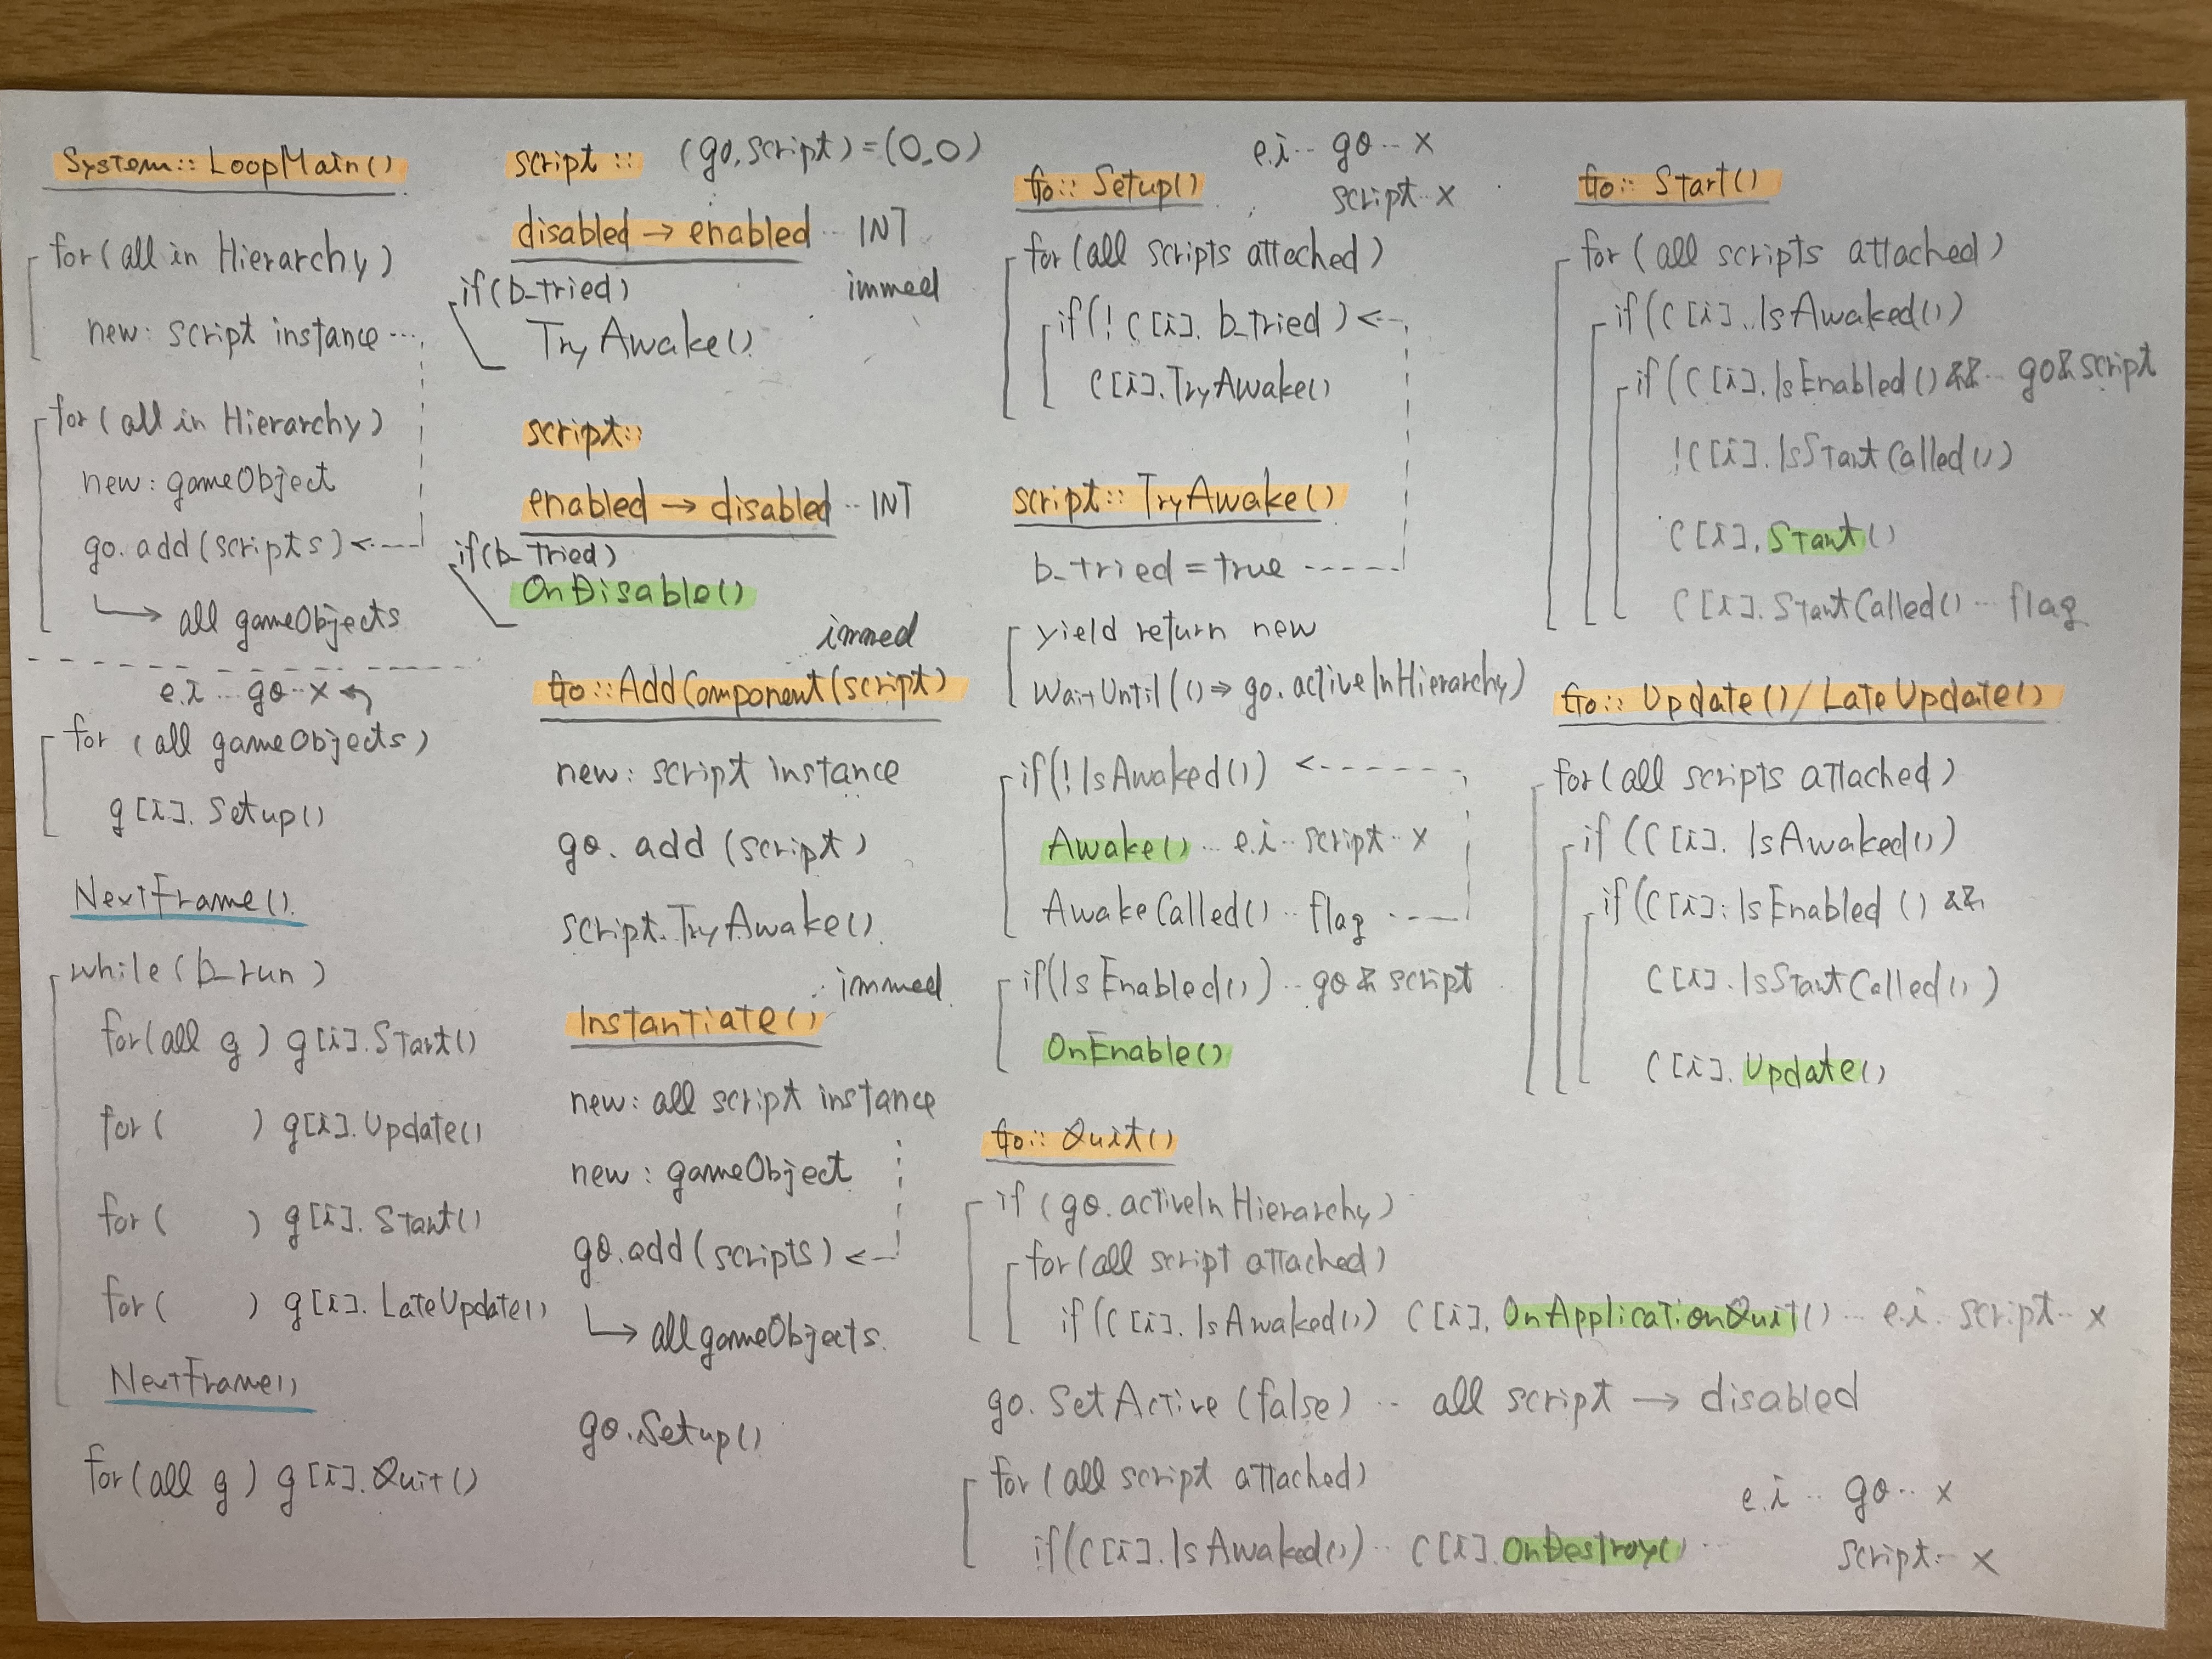 System::LoopMain()
for(all in Hierarchy)
new: script instance ...
for(all in Hierarchy)
new: gameObject
go.add(scripts)
→ all gameObjects
e.i ... go .. x
for (all gameObjects)
g[i].Setup()
NextFrame().
while(b_run)
for(all g) g[i].Start()
for( ) g[i].Update()
for( ) g[i].Start()
for( ) g[i].LateUpdate()
NextFrame()
for(all g) g[i].Quit()
script :: (go,script)=(0,0)
disabled → enabled .. INT
immed
if(b_tried)
TryAwake()
script::
enabled → disabled .. INT
if(b_tried)
OnDisable()
immed
Go::AddComponent(script)
new: script instance
go. add (script)
script.TryAwake()
immed
Instantiate()
new: all script instance
new: gameObject
go.add(scripts)
→ all gameObjects.
go.Setup()
e.i .. go .. x
script .. x
Go:: Setup()
for(all scripts attached)
if(! C[i]. b_tried)
C[i].TryAwake()
script:: TryAwake()
b_tried = true
yield return new
WaitUntil(()⇒ go.activeInHierarchy)
if(!IsAwaked())
Awake() .. e.i .. script .. x
AwakeCalled() .. flag
if(IsEnabled()) .. go & script
OnEnable()
Go:: Quit()
if (go.activeInHierarchy)
for(all script attached)
if(C[i].IsAwaked()) C[i].OnApplicationQuit() ... e.i .. script .. x
go. SetActive (false) .. all script → disabled
for(all script attached)
if(C[i].IsAwaked()) .. C[i].OnDestroy() ..
e.i .. go .. x
script .. x
Go:: Start()
for(all scripts attached)
if(C[i]. IsAwaked())
if(C[i].IsEnabled() && .. go & script
!C[i].IsStartCalled())
C[i].Start()
C[i].StartCalled() .. flag
Go:: Update()/LateUpdate()
for(all scripts attached)
if(C[i]. IsAwaked())
if(C[i].IsEnabled() &&
C[i].IsStartCalled())
C[i].Update()